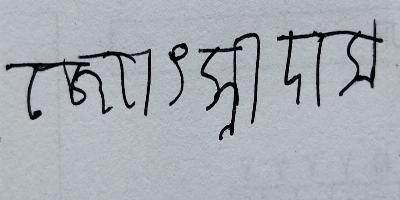 জ্যোৎস্না দাস